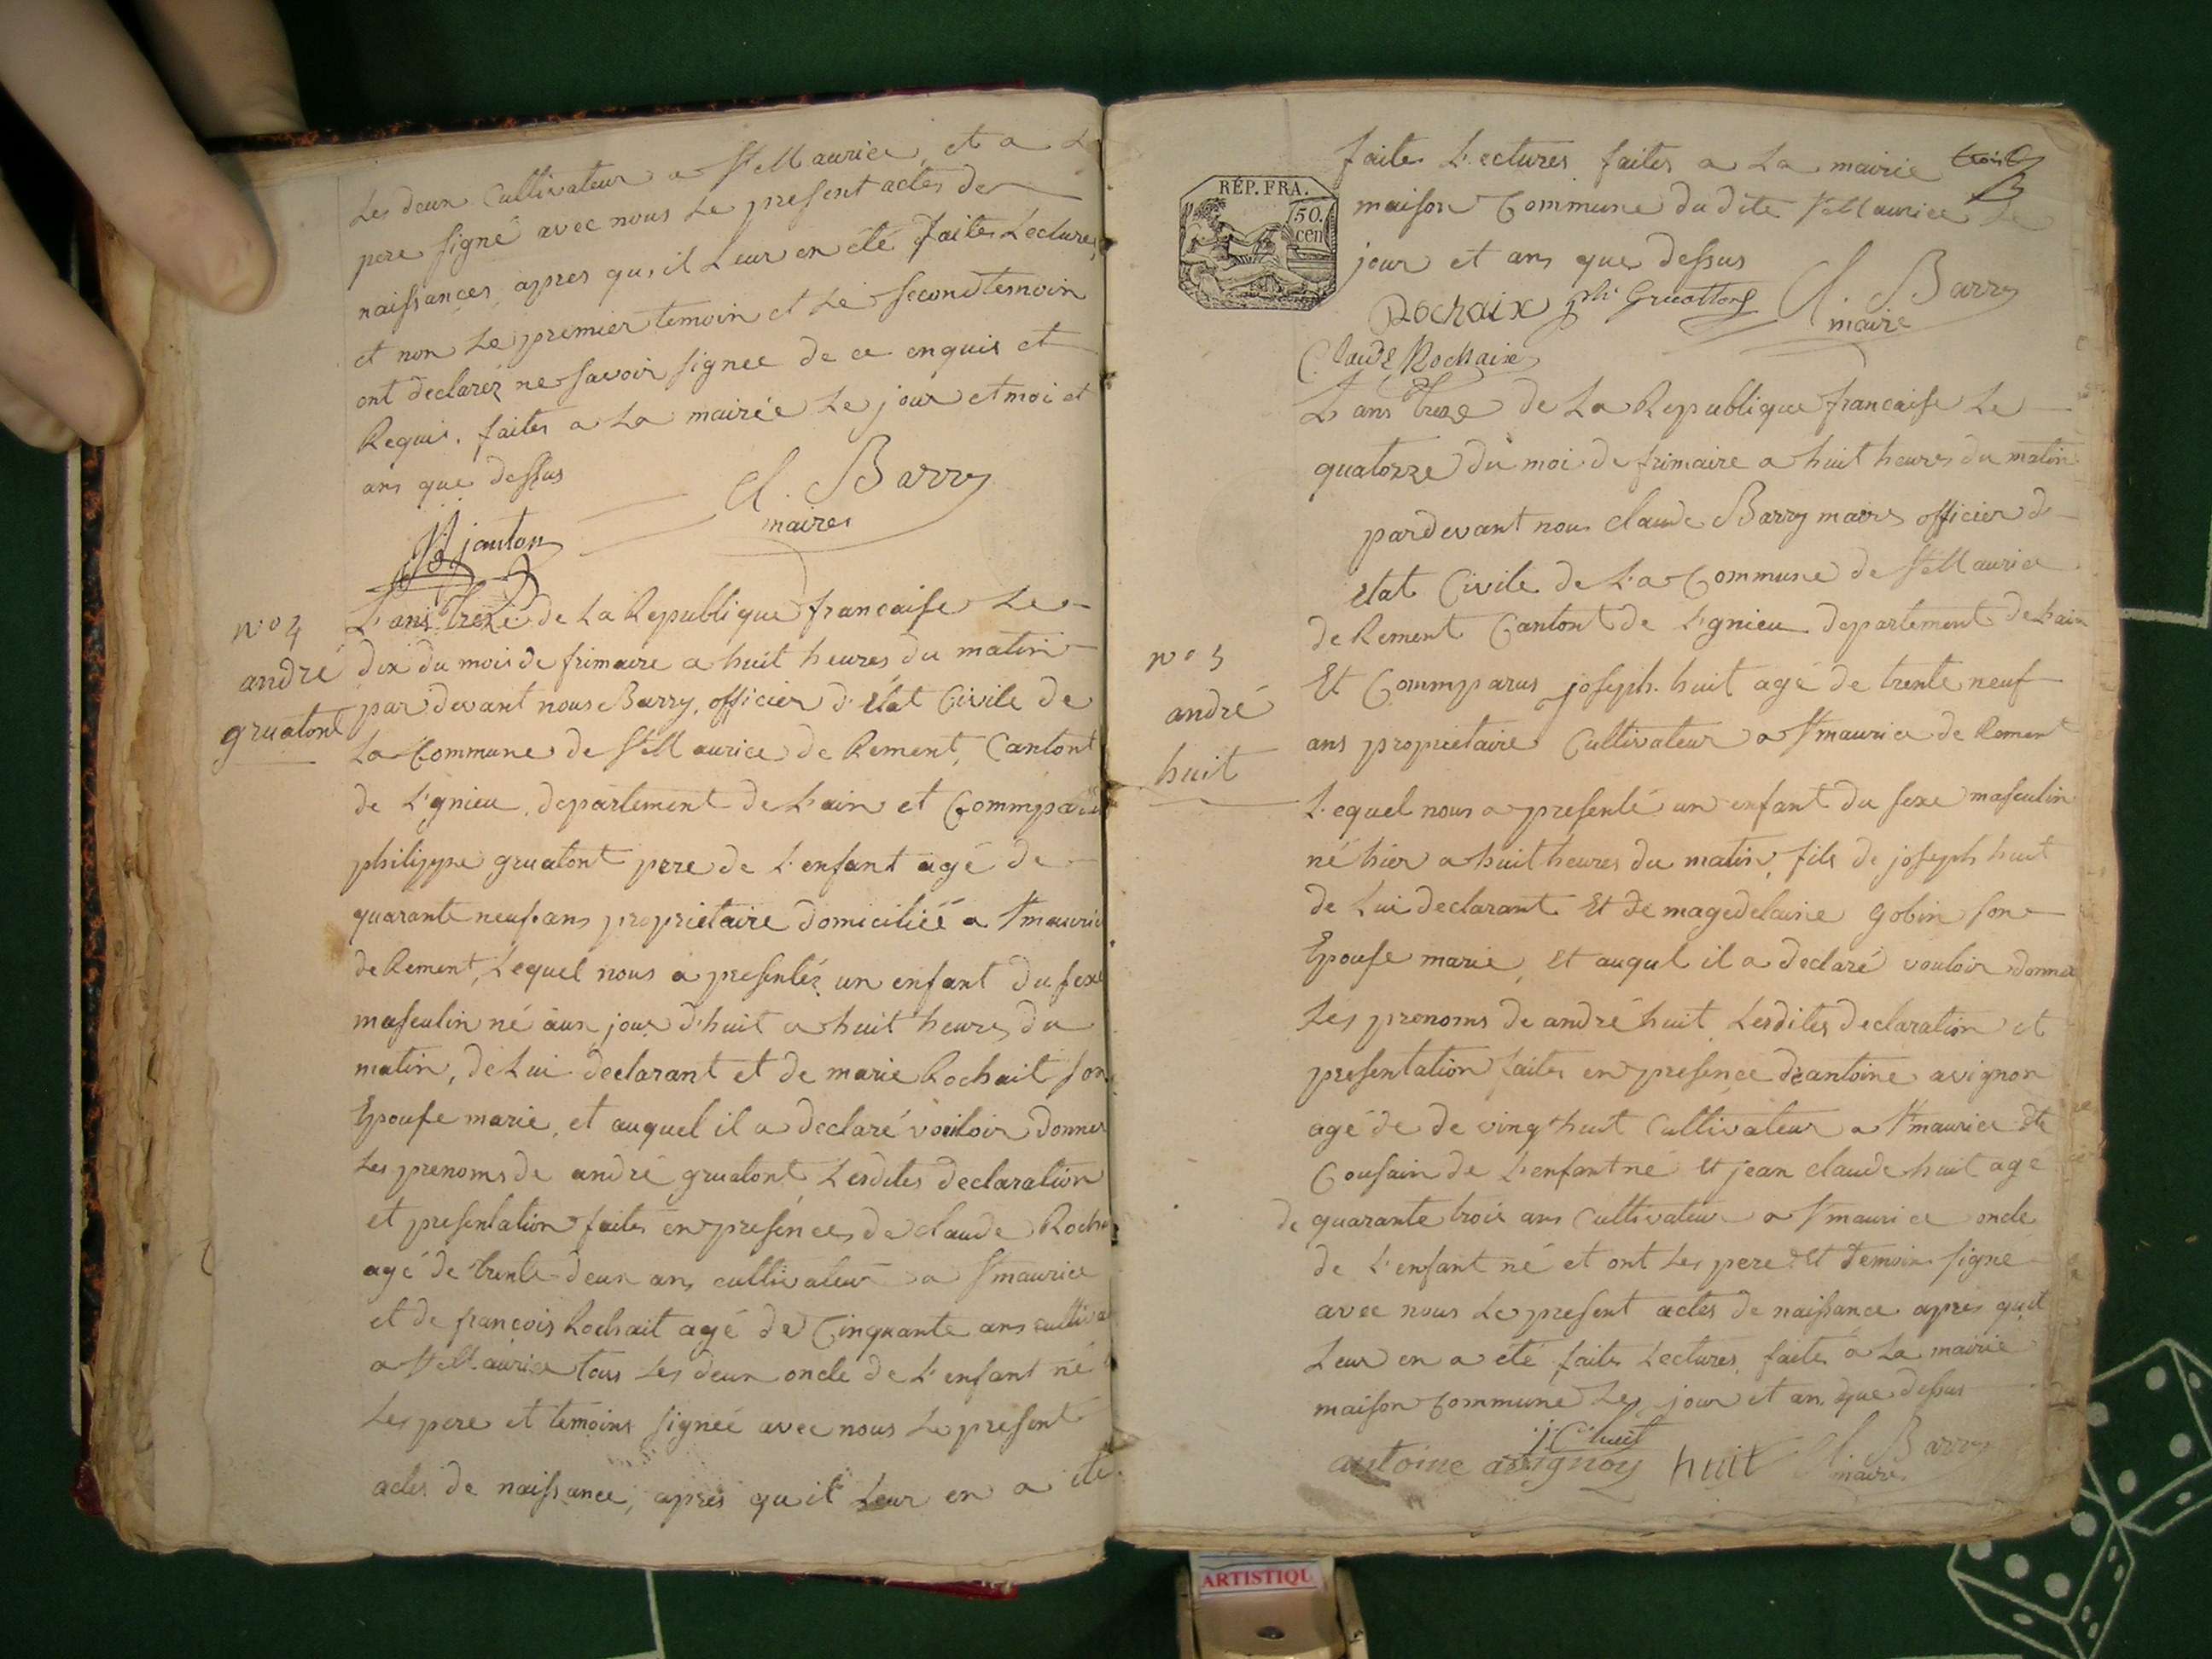 Les deux Cultivateur a St Maurice, et a L
pere signé avec nous Le present actes de
naissances, apres qu'il Leur en été faites Lectures
et non Le premier temoin et Le second temoin
ont declarez ne savoir signee de ce enquis et
Requis. faites a La mairée Le jour et moi et
ans que dessus
Cl. Barry
maires
janton
n° 4
andré
gruatont
L'ans treze de La Republique francaise Le
dix du mois de frimaire a huit heures du matin
par devant nous Barry, officier d'état Civile de
La Commune de St Maurice de Rement, Cantont
de L'gnieu, departement de L'ain et Commparu
philippe gruatont pere de L'enfant agé de
quarante neuf ans proprietaire domiciliéé a St maurice
de Rement, Lequel nous a presentéz un enfant du sexe
masculin né aux jour d'huit a huit heures du
matin, de Lui declarant et de marie Rochait son
Epouse marie, et auquel il a declaré vouloir donner
Les prenoms de andré gruatont, Lesdites declaration
et presentation faites en presences de claude Roch
agé de trente deux ans cultivateur a St maurice
et de françois Rochait agé de Cinquante ans cultiva
a St Maurice tous Les deux oncle de L'enfant né
Les pere et temoins signéé avec nous Le present
actes de naissance, apres qu'il Leur en a été
faite Lectures faites a La mairie
trois
maison Commune du dite St Maurice Le
jour et ans que dessus
RÉP. FRA.
50.
cen
Rochaix phi Gruattont Cl. Barry
maire
Claude Rochaix
L'ans treze de La Republique francaise Le
quatorze du moi de frimaire a huit heures du matin
pardevant nous claude Barry maires officier d
etat Civile de L'a Commune de St Maurice
de Rement Cantont de L'gnieu departement de L'ain
n° 5
andré
huit
Et Commparus joseph huit agé de trente neuf
ans proprietaire Cultivateur a St maurice de Rement
Lequel nous a presenté un enfant du sexe masculin
né hier a huit heures du matin, fils de joseph huit
de Lui declarant Et de magedelaine gobin son
Epouse marie, Et auqul il a declaré vouloir donner
Les prenoms de andré huit, Lesdites declaration et
presentation faites en presence de antoine avignon
agé de de vingt huit Cultivateur a St maurice dte
Cousain de L'enfant né Et jean claude huit agé
de quarante trois ans Cultivateur a St maurice oncle
de L'enfant né et ont Les pere Et temoin signé
avec nous Le present actes de naissance apres quil
Leur en a été faites Lectures, faites a La mairie
maison Commune Les jour et an que dessus
j C huit
antoine avignon huit Cl. Barry
maires
ARTISTIQU